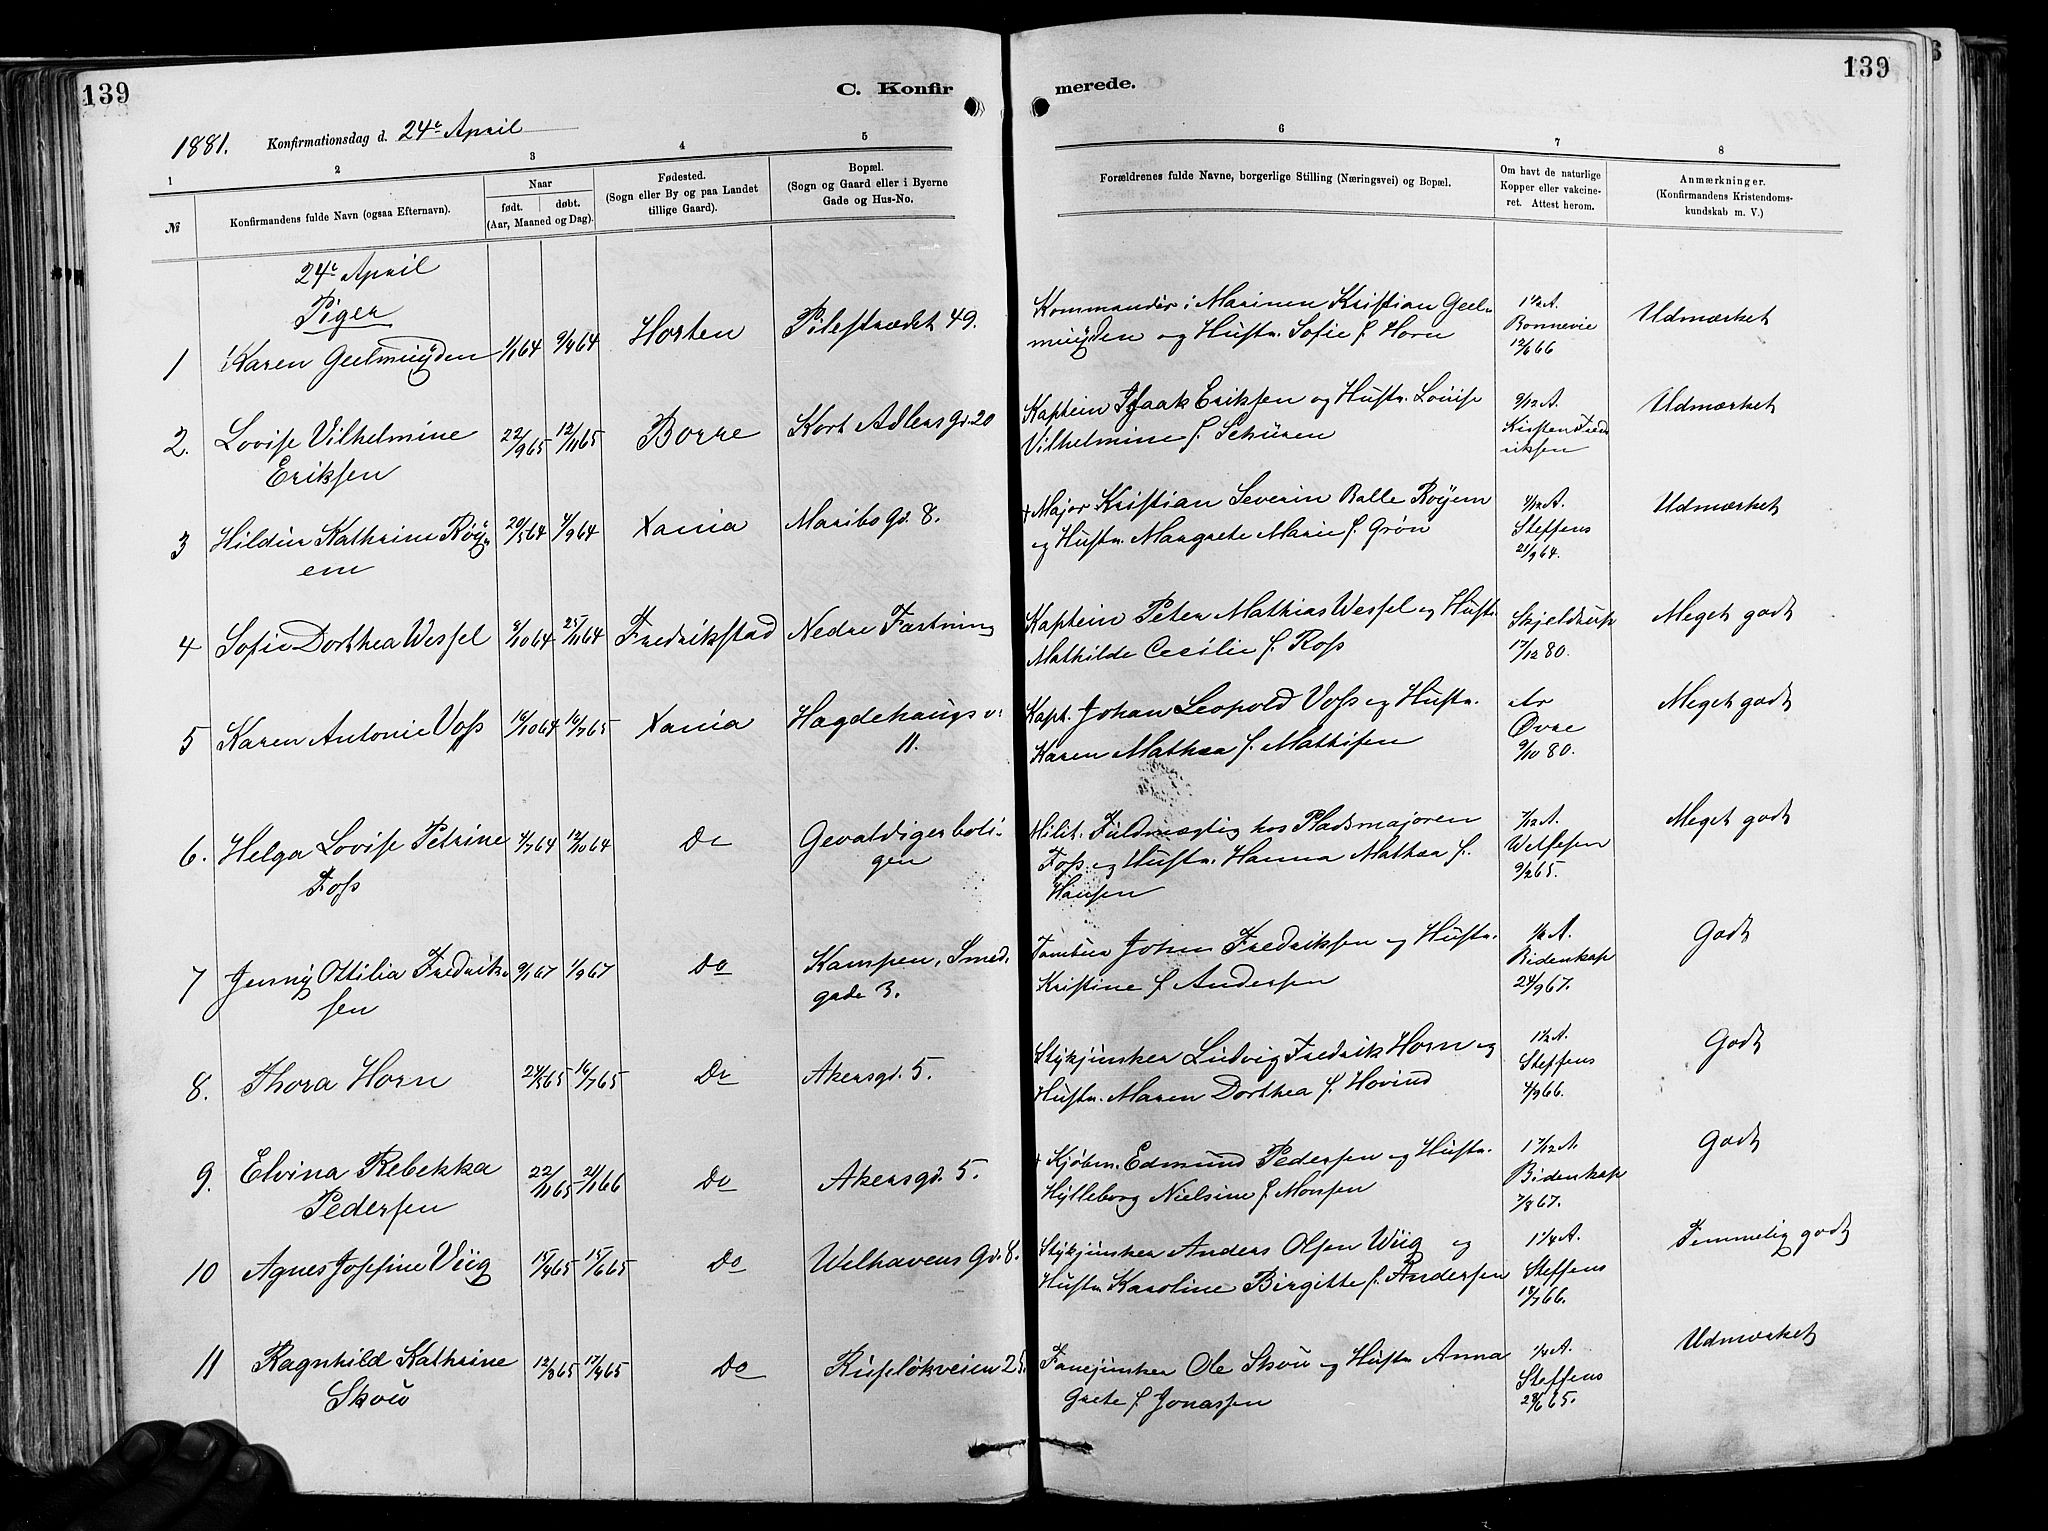 139
C. Konfir
merede.
139
1881. Konfirmationsdag d. 24de April
1 2 3 4 5 6 7 8
№
Konfirmandens fulde Navn (ogsaa Efternavn).
Naar
født. døbt.
(Aar, Maaned og Dag).
Fødested.
(Sogn eller By og paa Landet
tillige Gaard).
Bopæl.
(Sogn og Gaard eller i Byerne
Gade og Hus-No.
Forældrenes fulde Navne, borgerlige Stilling (Næringsvei) og Bopæl.
Om havt de naturlige
Kopper eller vakcine-
ret. Attest herom.
Anmærkninger.
(Konfirmandens Kristendoms-
kundskab m. V.)
24de April
Piger
1 Karen Geelmuyden 1/1 64 9/4 64 Horten Pilestrædet 49.
Kommandør i Marinen Kristian Geel-
muyden og Hustr. Sofie f. Horn
1 1/2 A.
Bonnevie
12/6 66
Udmærket
2. Lovise Vilhelmine
Eriksen
22/9 65 12/11 65 Borre Kort Adlers Gd. 20
Kaptein Isaak Eriksen og Hustr. Louise
Vilhelmine f. Schüren
9/12 A.
Kirsten Fred
riksen
Udmærket
3 Hildur Kathrine Röy-
em
20/5 64 4/9 64 Xania Maribo Gd. 8.
+ Major Kristian Severin Balle Röyem
og Hustr. Margrete Marie f. Grøn
4/12 A.
Steffens
21/9 64.
Udmærket
4 Sofie Dorthea Wessel 8/10 64 25/11 64 Fredrikstad Nedre Fæstning
Kaptein Peter Mathias Wessel og Hustr.
Mathilde Cecilie f. Ross
Skjeldrup
17/12 80.
Meget godt
5 Karen Antonie Voss 16/10 64 16/7 65 Xania Hægdehaugsv.
11.
Kapt. Johan Leopold Voss og Hustr.
Karen Mathea f. Mathisen
Ar
Øvre
9/10 80.
Meget godt
6. Helga Lovise Petrine
Foss
4/7 64 12/10 64 Do Gevaldigerboli-
gen
Milit. Fuldmægtig hos Pladsmajoren
Foss og Hustr. Hanna Mathea f.
Hansen
7/12 A.
Welfesen
9/2 65.
Meget godt
7 Jenny Ottilia Fredrik-
sen
9/1 67 1/9 67 Do Kampen, Smed.
gade 3.
Tambur Johan Fredriksen og Hustr.
Kristine f. Andersen
1/2 A.
Bidenkap
24/9 67.
Godt
8. Thora Horn 24/5 65 16/7 65 Do Akersgd. 5.
Stykjunker Ludvig Fredrik Horn og
Hustr. Maren Dorthea f. Hovind
1 1/2 A.
Steffens
4/9 66.
Godt
9. Elvina Rebekka
Pedersen
22/11 65 21/1 66 Do Akersgd. 5.
+ Kjøbm. Edmund Pedersen og Hustr.
Hylleborg Nielsine f. Monsen
1 7/12 A.
Bidenkap
7/8 67.
Godt
10 Agnes Josefine Viig 15/4 65 15/6 65 Do Welhavens Gd. 8.
Stykjunker Anders Olsen Wiig og
Hustr. Karoline Birgitte f. Andersen
1 1/4 A.
Steffens
18/7 66.
Temmelig godt
11 Ragnhild Kathrine
Skou
12/3 65 17/4 65 Do Ruseløkveien 25.
Fanejunker Ole Skou og Hustr Anna
Grete f. Jonassen
1/4 A.
Steffens
28/6 65.
Udmærket